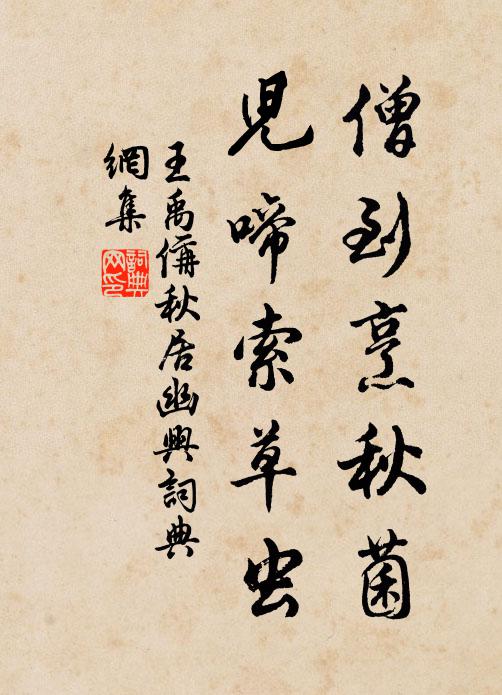 僧到烹秋菌
兒啼索草虫
王禹偁秋居幽興詞典
網集
詞典
网印